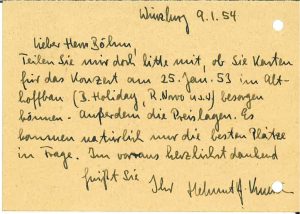 Würzburg 9.1.54
Lieber Herr Böhm,
Teilen Sie mir doch bitte mit, ob Sie Karten
für das Konzert am 25. Jan. 53 im Alt-
hoffbau (B. Holiday, R. Norvo u.s.w) besorgen
können. Außerdem die Preislagen. Es
kommen natürlich nur die besten Plätze
in Frage. Im voraus herzlichst dankend
grüßt Sie Ihr Helmut